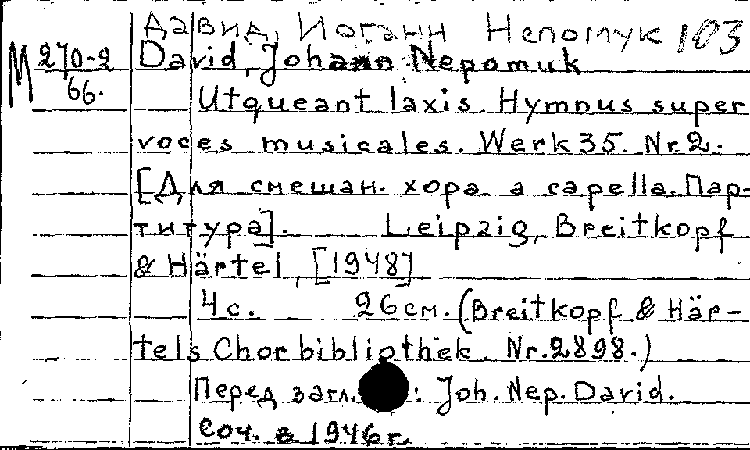 Давид, Иоганн Непомук 103
M 270-2 David, Johann Nepomuk
66.
Utqueant laxis. Hymnus super
voces musicales. Werk 35. Nr.2.
[Для смешан. хора а capella. Пар-
титура]. Leipzig, Breitkopf
& Härtel, [1948]
4 с. 26 см. (Breitkopf & Här-
tels Chorbibliothek. Nr.2898.)
Перед загл. : Joh. Nep. David.
Соч. в 1946 г.